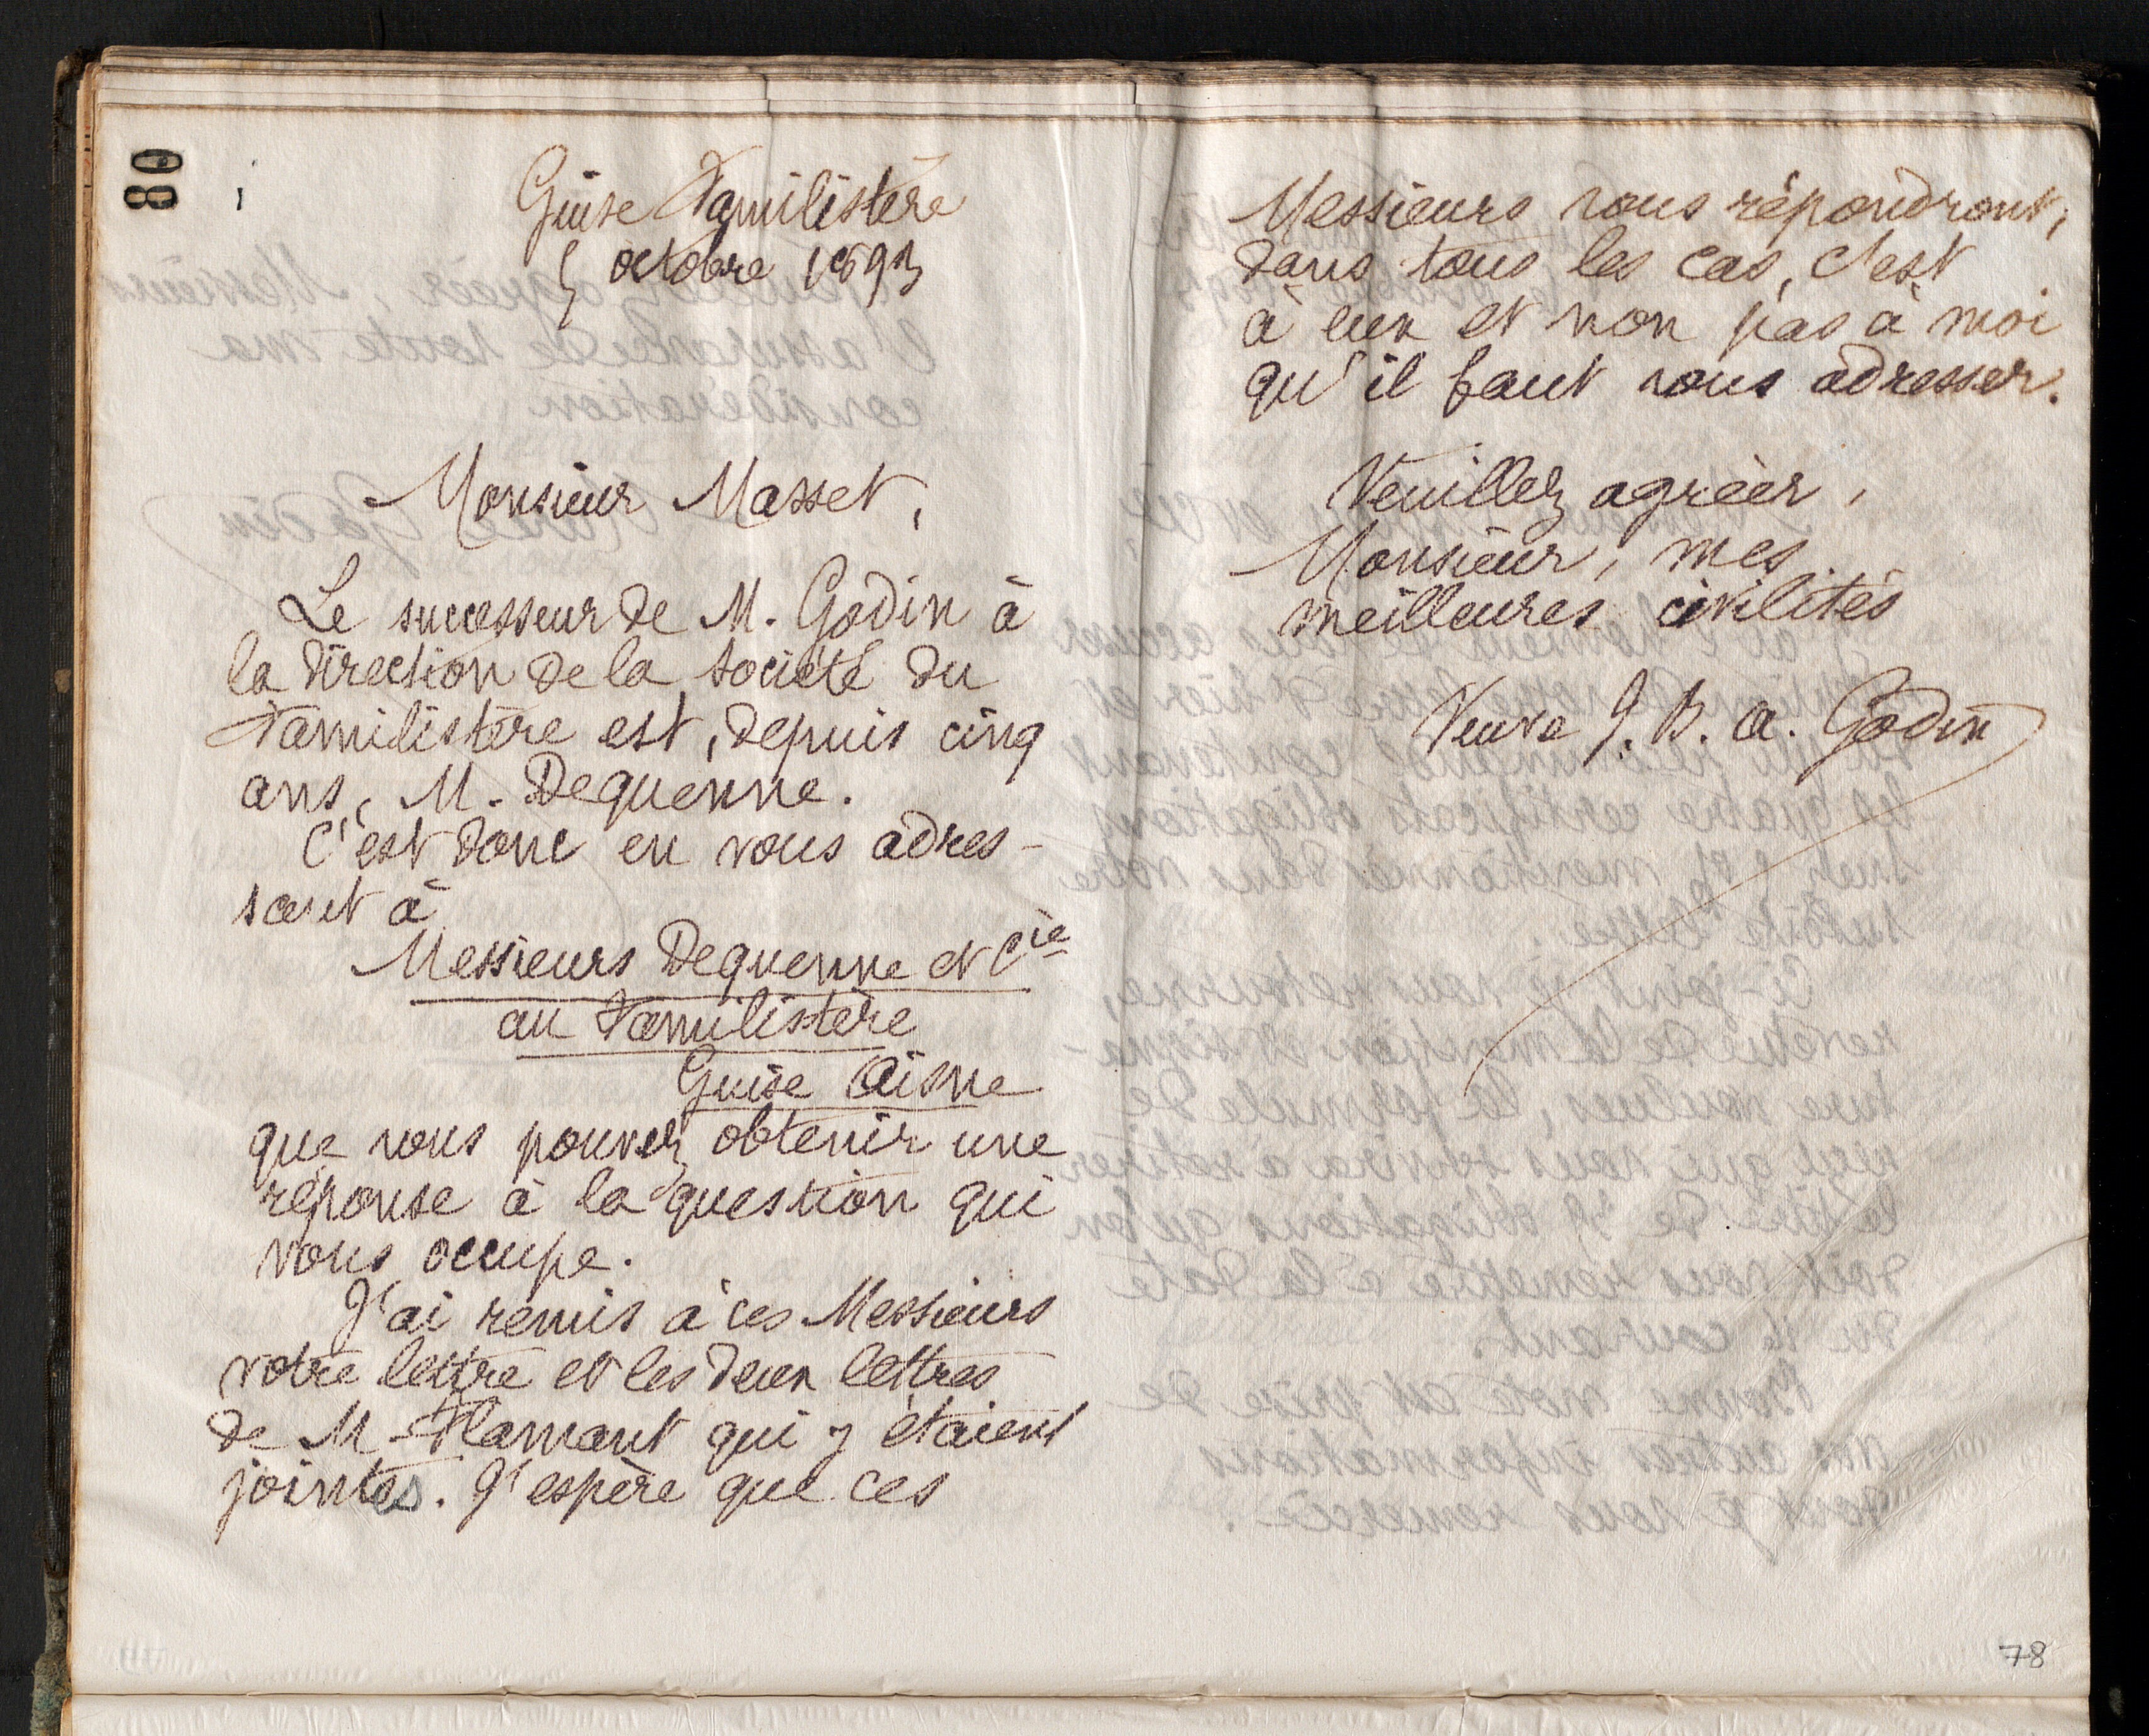 80
Guise Familistère
5 octobre 1893
Monsieur Masset,
Le successeur de M. Godin à
la direction de la société du
Familistère est, depuis cinq
ans, M. Dequenne.
C'est donc en vous adres-
sant à
Messieurs Dequenne et Cie
au Familistère
Guise Aisne
que vous pouvez obtenir une
réponse à la question qui
vous occupe.
J'ai remis à ces Messieurs
votre lettre et les deux lettres
de M. Flamant qui y étaient
jointes. J'espère que ces
Messieurs vous répondront,
dans tous les cas, c'est
à eux et non pas à moi
qu'il faut vous adresser.
Veuillez agréer,
Monsieur, mes
meilleures civilités
Veuve J. B. A. Godin
78